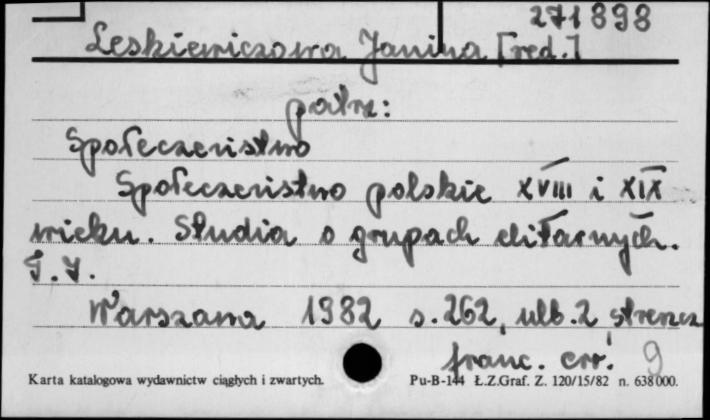 271898
Leskiewiczowa Janina [red.]
patrz:
Społeczeństwo
Społeczeństwo polskie XVIII i XIX
wieku. Studia o grupach elitarnych.
T. 7.
Warszawa 1982 s. 262, ulb. 2, streszcz
franc. err. 9
Karta katalogowa wydawnictw ciągłych i zwartych. Pu-B-144 Ł.Z.Graf. Z. 120/15/82 n. 638000.